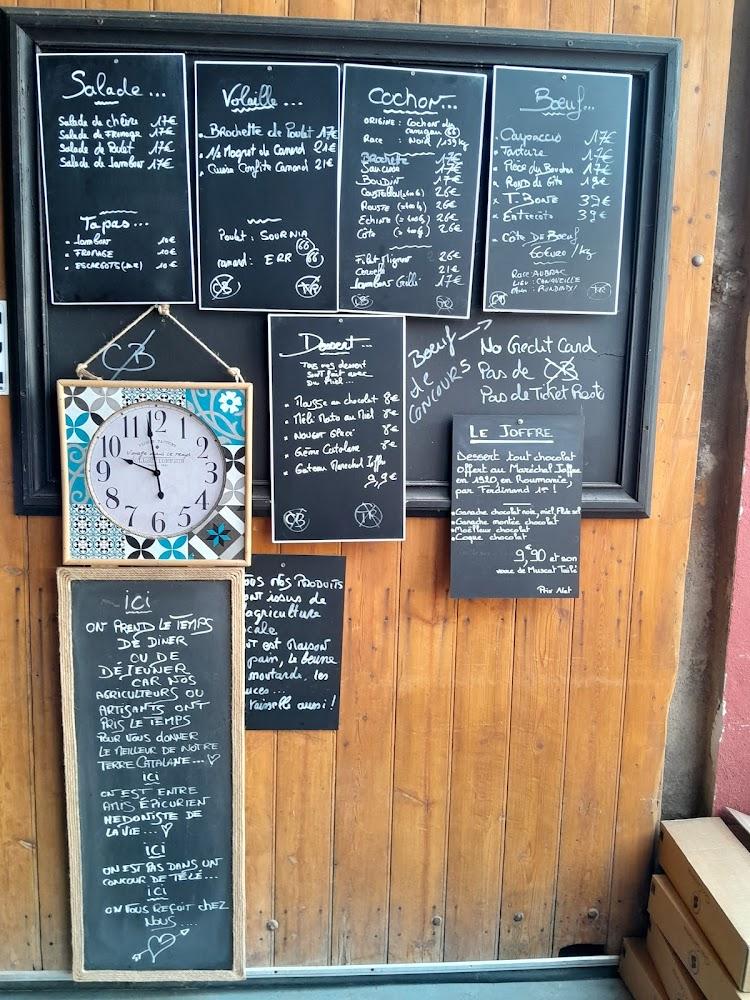 Salade...
Salade de chèvre 17€
Salade de Fromage 17€
Salade de Poulet 17€
Salade de Jambon 17€
Tapas...
Jambon 10€
FROMAGE 10€
ESCARGOTS 10€
Volaille...
Brochette de Poulet 17€
1/2 Magret de Canard 21€
Cuisse Confite Canard 21€
Poulet : SOURNIA
canard : ERR 66
CB
TR
Cochon...
ORIGINE : Cochon du
canigou 66
Race : Noir /
Brochette 17€
Saucisse 17€
BOUDIN 17€
26€
26€
Echine 26€
Côte 26€
Filet Mignon 26€
Cervelle 21€
Jambon Grillé 17€
CB
TR
Boeuf...
Carpaccio 17€
Tartare 17€
Pièce du Boucher 17€
ROND du Gîte 19€
T. BONE 39€
Entrecôte 39€
Côte DE Boeuf
60 euro /kg
Race AUBRAC
CB
TR
Dessert...
Tous nos dessert
sont fait avec
Du Miel...
Mousse au chocolat 8€
Méli Mato au Miel 8€
Nougat Glacé 8€
Crème Catalane 8€
Gateau Maréchal Joffre
9,9€
CB
TR
Boeuf
de
CONCOURS
No Credit Card
Pas de CB
Pas de Ticket Resto
CB
LE JOFFRE
Dessert tout chocolat
offert au Maréchal Joffre
en 1920, en Roumanie,
par Ferdinand 1er !
Ganache chocolat noir, miel,
Ganache montée chocolat
Moëlleux chocolat
Coque chocolat
9,90€ et son
verre de Muscat Tuilé
Prix Net
12
1
2
3
4
5
6
7
8
9
10
11
ous nos PRODUITS
ont issus de
agriculture
cale
ut est Maison
pain, le beurre
moutarde, les
uces...
vaisselle aussi !
ici
ON PREND LE TEMPS
DE DINER
OU DE
DÉJEUNER
CAR NOS
AGRICULTEURS OU
ARTISANTS ONT
PRIS LE TEMPS
POUR VOUS DONNER
LE MEILLEUR DE NOTRE
TERRE CATALANE...
ici
ON EST ENTRE
AMIS ÉPICURIEN
HEDONISTE DE
LA VIE...
ici
ON EST PAS DANS UN
CONCOUR DE TÉLÉ...
ici
ON VOUS REÇOIT CHEZ
NOUS....